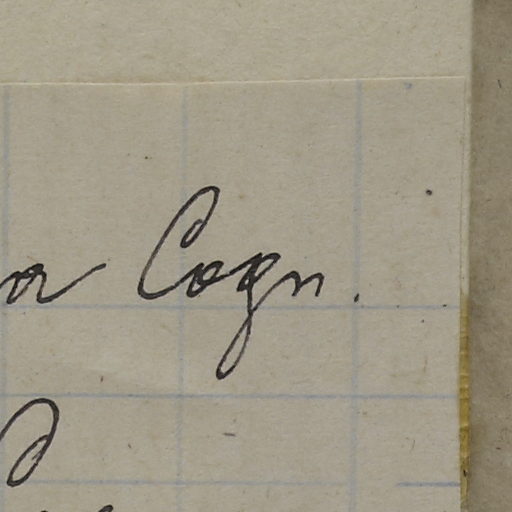 a Cogn.